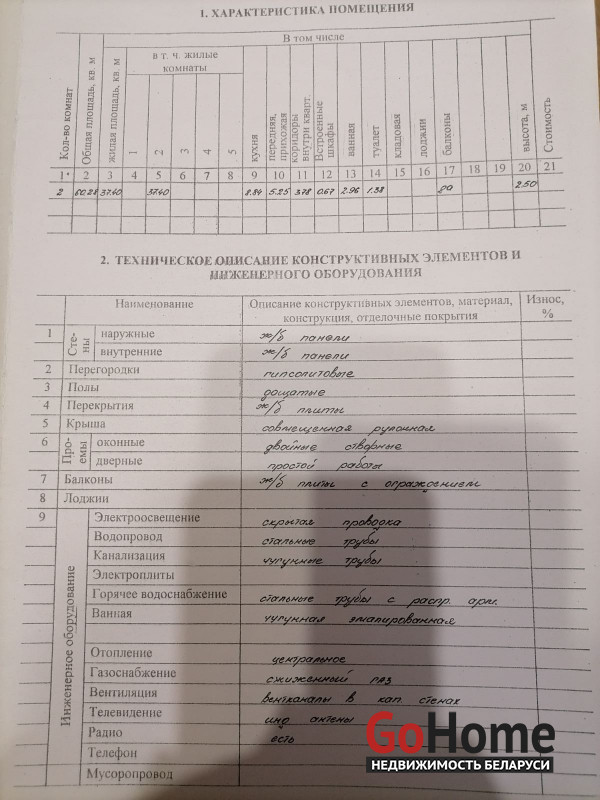 1. ХАРАКТЕРИСТИКА ПОМЕЩЕНИЯ
Кол-во комнат
Общая площадь, кв. м
жилая площадь, кв. м
В том числе
в т. ч. жилые
комнаты
1 2 3 4 5
кухня
передняя,
прихожая
коридоры
внутри кварт.
Встроенные
шкафы
ванная
туалет
кладовая
лоджии
балконы
высота, м
Стоимость
1 2 3 4 5 6 7 8 9 10 11 12 13 14 15 16 17 18 19 20 21
2 60.28 37.40 37.40 8.84 5.25 3.78 0.67 2.96 1.38 да 2.50
2. ТЕХНИЧЕСКОЕ ОПИСАНИЕ КОНСТРУКТИВНЫХ ЭЛЕМЕНТОВ И
ИНЖЕНЕРНОГО ОБОРУДОВАНИЯ
Наименование
Описание конструктивных элементов, материал,
конструкция, отделочные покрытия
Износ,
%
1 Сте-
ны
наружные ж/б панели
внутренние ж/б панели
2 Перегородки гипсолитовые
3 Полы дощатые
4 Перекрытия ж/б плиты
5 Крыша совмещенная рулонная
6 Про-
емы
оконные двойные створные
дверные простой работы
7 Балконы ж/б плиты с ограждением
8 Лоджии
9 Инженерное оборудование
Электроосвещение скрытая проводка
Водопровод стальные трубы
Канализация чугунные трубы
Электроплиты
Горячее водоснабжение стальные трубы с распр. арм.
Ванная чугунная эмалированная
Отопление центральное
Газоснабжение сжиженный газ
Вентиляция вентканалы в кап. стенах
Телевидение инд антены
Радио есть
Телефон
Мусоропровод
GoHome
НЕДВИЖИМОСТЬ БЕЛАРУСИ